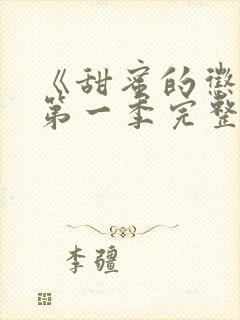 《甜蜜的徵
第一季完整
李疆